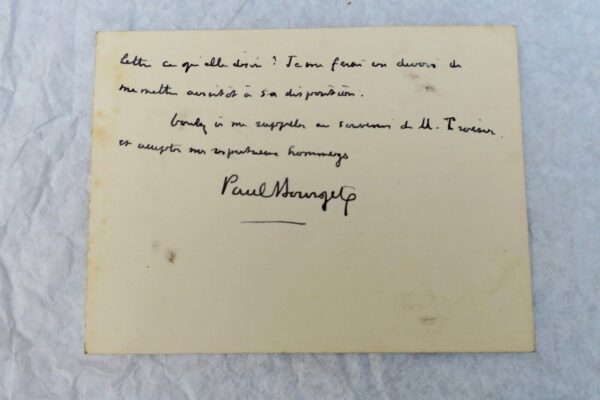 lettre ce qu'elle désire ? Je me ferai un devoir de
me mettre aussitôt à sa disposition.
Voulez à me rappeler au souvenir de M.
et accepter mes respectueux hommages
Paul Bourget